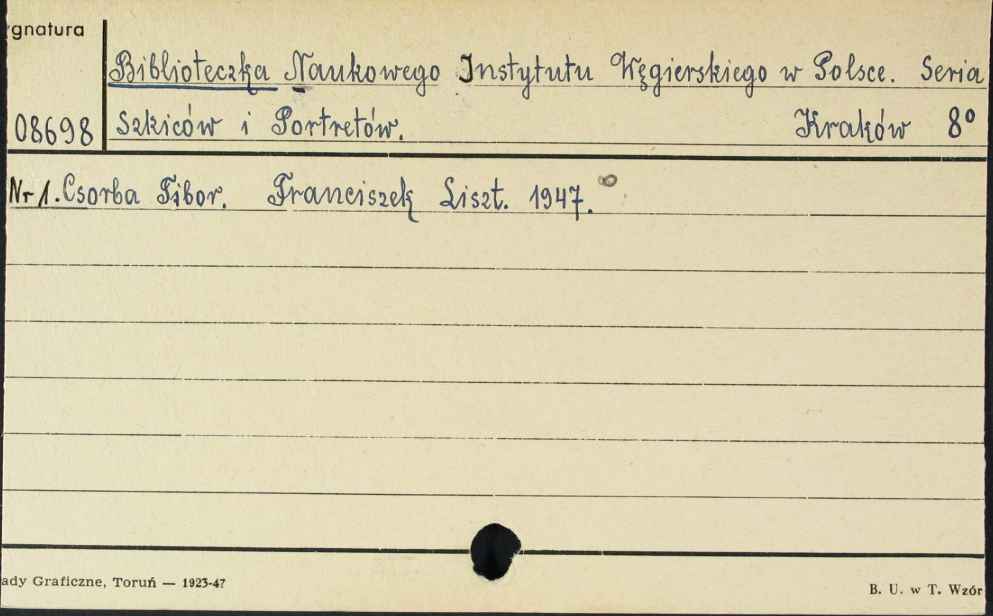 ygnatura
Biblioteczka Naukowego Instytutu Węgierskiego w Polsce. Seria
08698 Szkiców i Portretów. Kraków 8º
Nr 1. Csorba Tibor. Franciszek Liszt. 1947.
ady Graficzne, Toruń — 1923-47
B. U. w T. Wzór